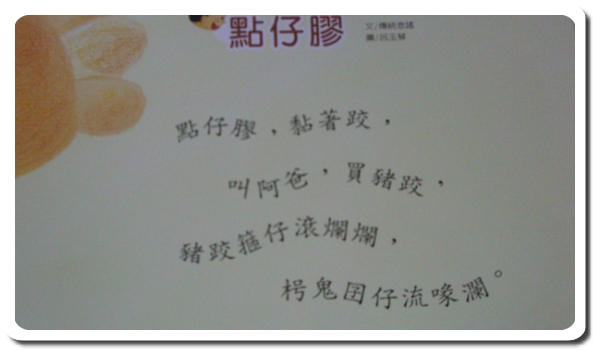 點仔膠
文/傳統念謠
點仔膠，黏著跤，
叫阿爸，買豬跤，
豬跤箍仔滾爛爛，
枵鬼囝仔流喙瀾。